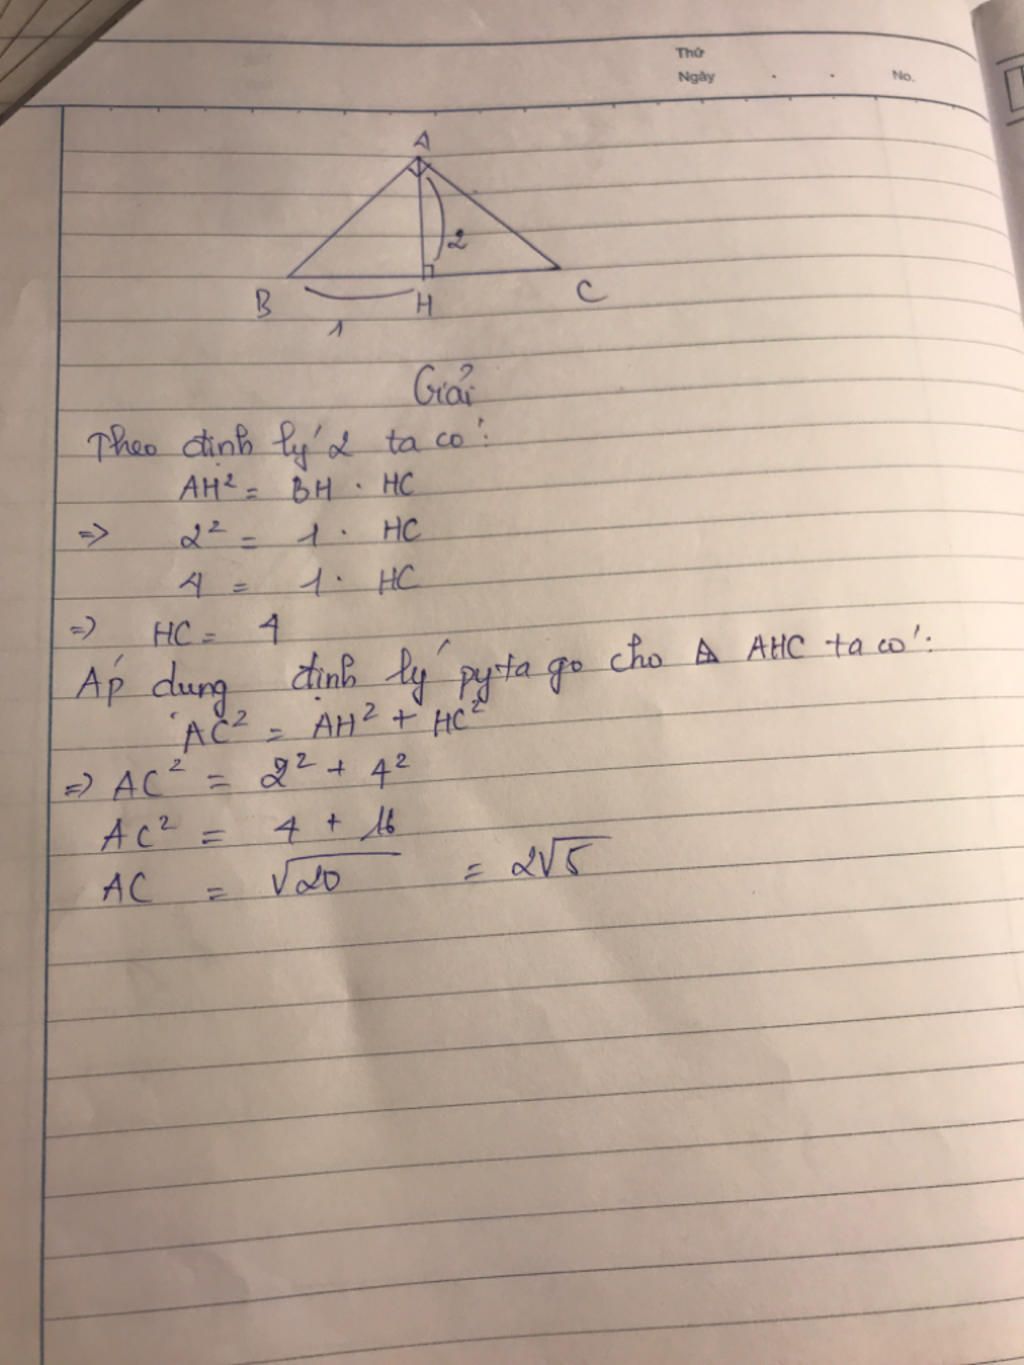 Thứ
Ngày . . No.
A
2
B H C
1
Giải
Theo định lý 2 ta có:
AH² = BH . HC
=> 2² = 1 . HC
4 = 1 . HC
=> HC = 4
Áp dụng định lý pytago cho Δ AHC ta có:
AC² = AH² + HC²
=> AC² = 2² + 4²
AC² = 4 + 16
AC = √20 = 2√5